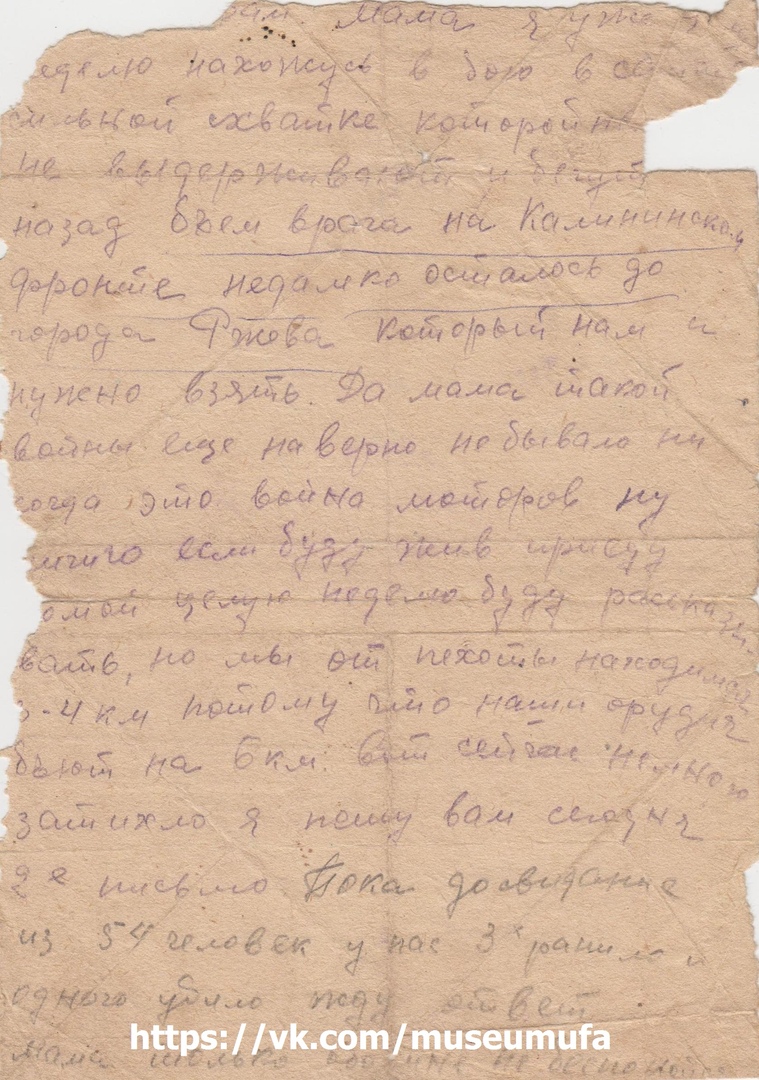 мама я уже
неделю нахожусь в бою в самой
сильной схватке которой
не выдерживают и бегут
назад бъем врага на Калининском
фронте недалко осталось до
города Ржева который нам и
нужно взять. Да мама такой
войны еще наверно небывало ни
когда это война моторов ну
ничиго если буду жив приеду
домой целую неделю буду расказы-
вать, но мы от пехоты находимся
3-4 км потому что наши орудия
бьют на 6 км. вот сейчас немного
затихло я пешу вам сегодня
2е письмо Пока досвидание
из 54 человек у нас 3х ранило и
одного убило жду ответ
мама только не беспокойся
https://vk.com/museumufa